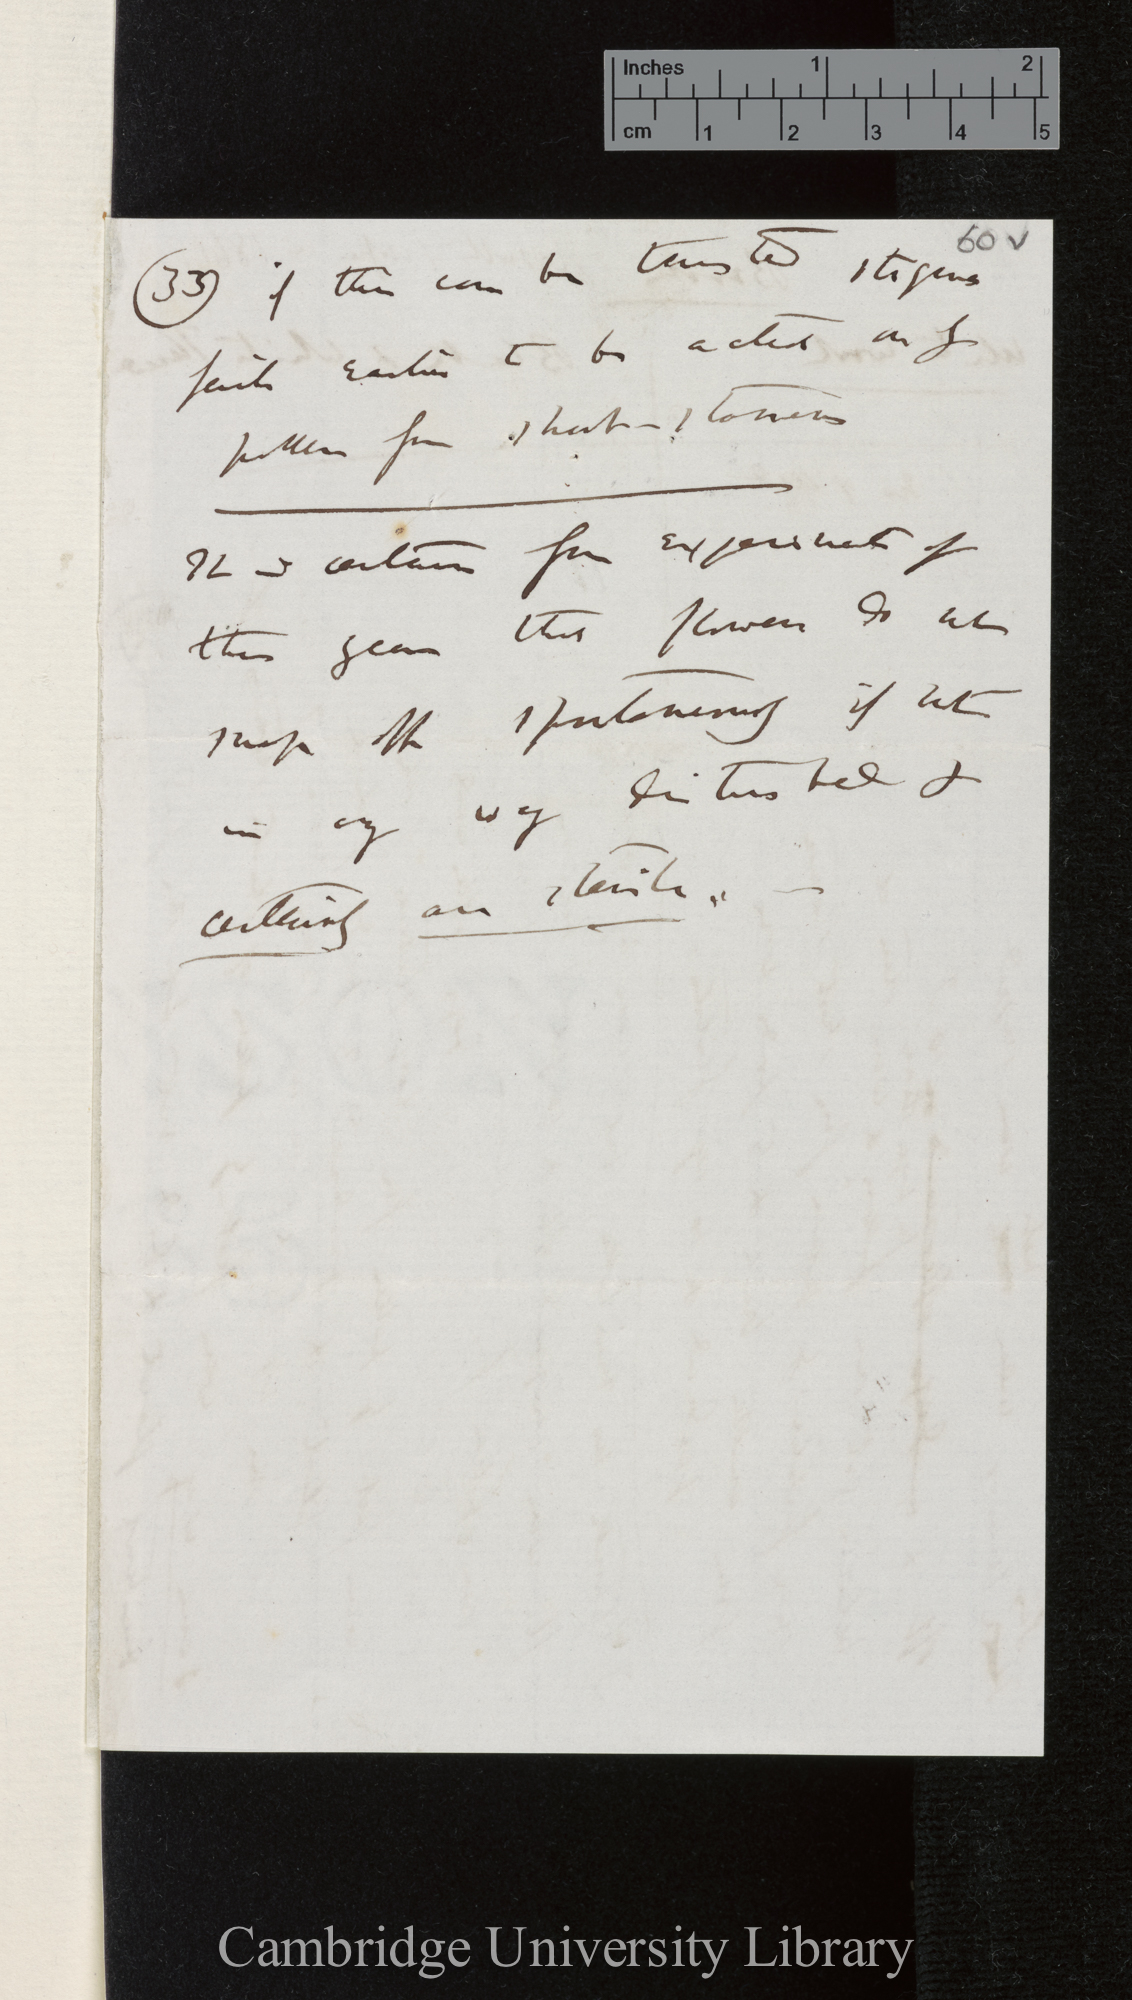 Inches 1 2
cm 1 2 3 4 5
60 v
(33) if this can be trusted stigma
easier to be acted on by
pollen from short-stamens
It is certain from experiments of
this year that flowers do not
snap off spontaneously if not
in any way disturbed &
certainly are sterile. —
Cambridge University Library